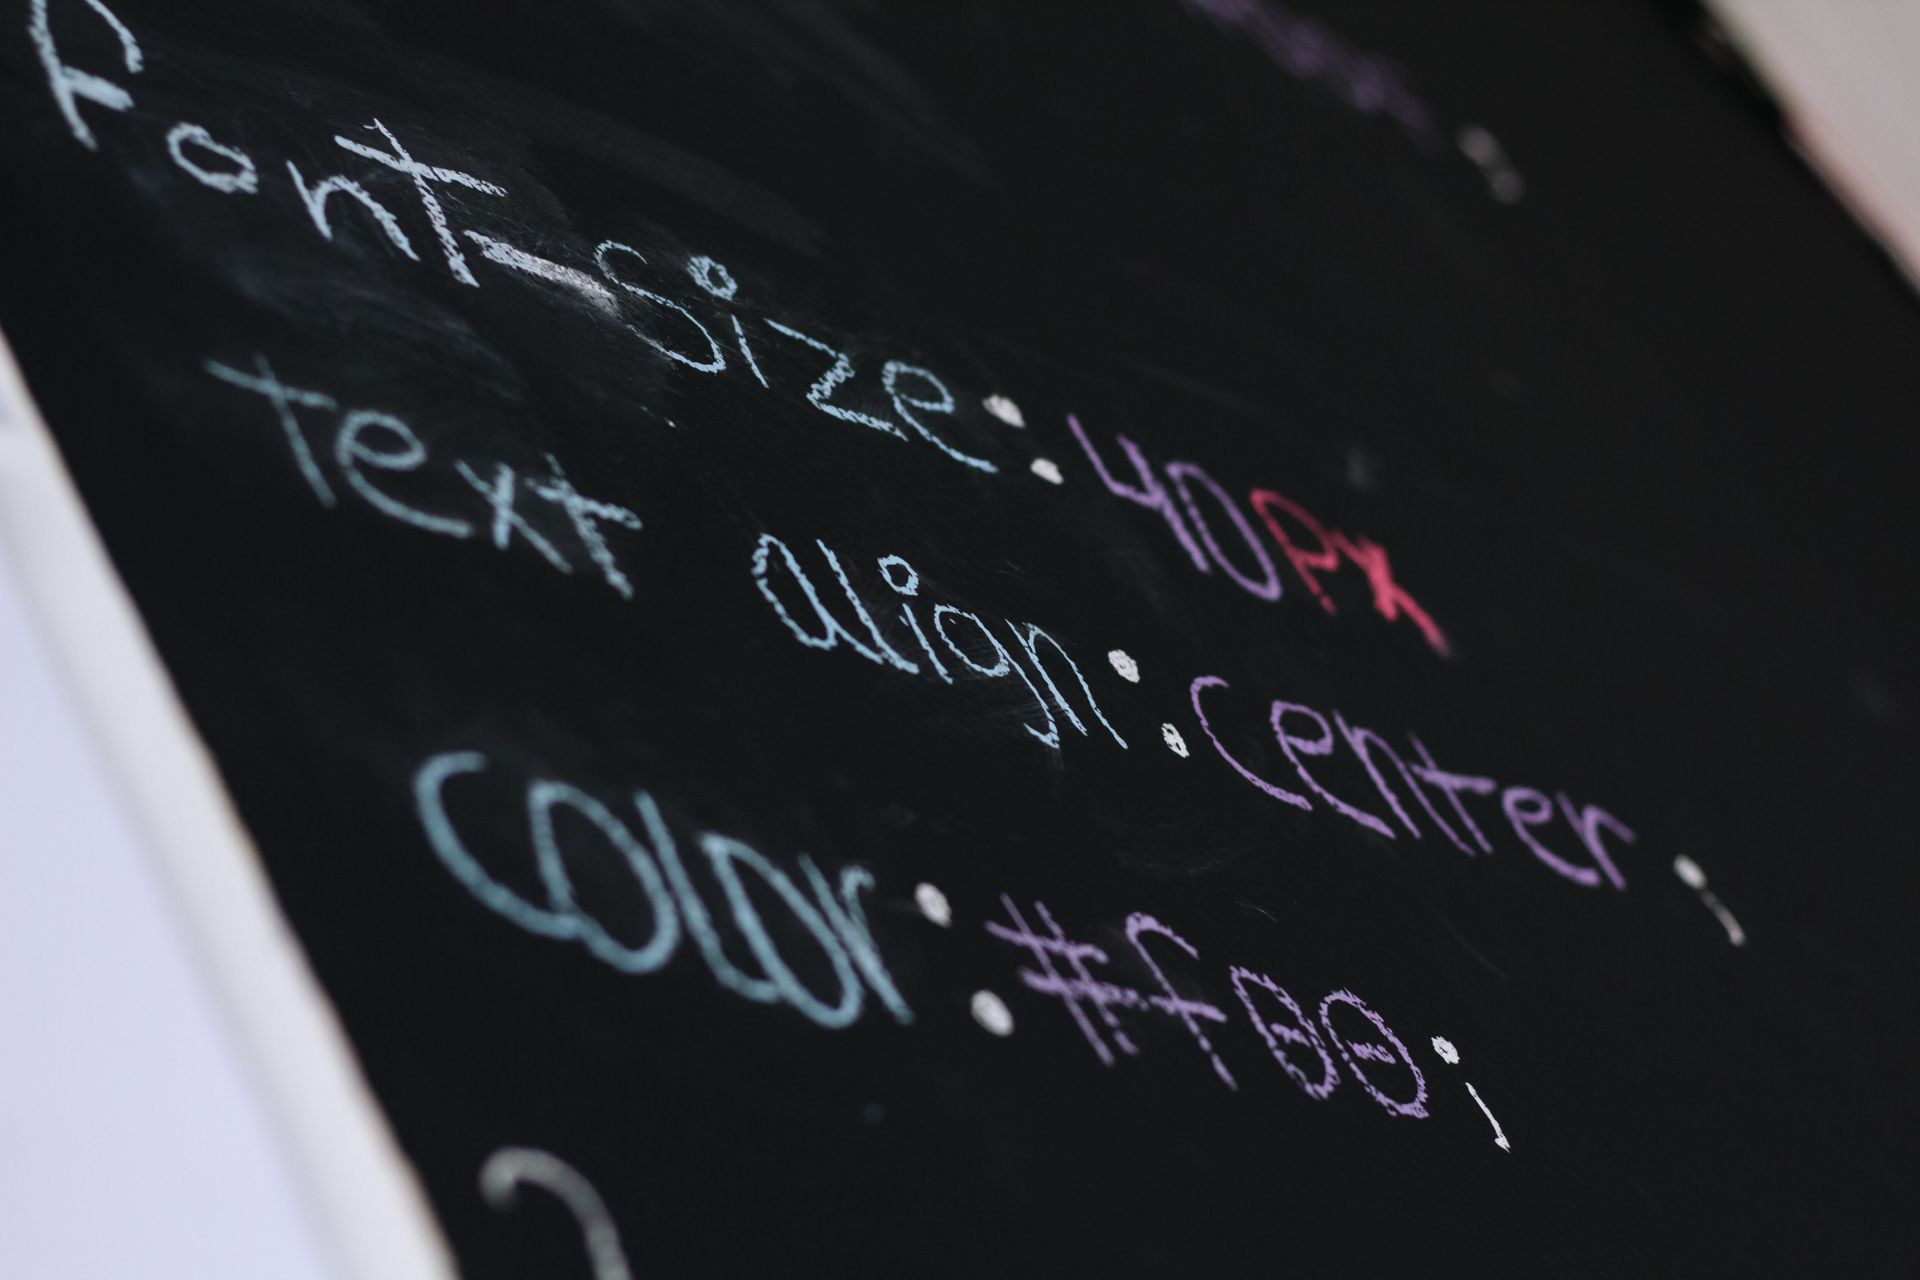 font-size:40px
text align:center;
color:#f00;
}